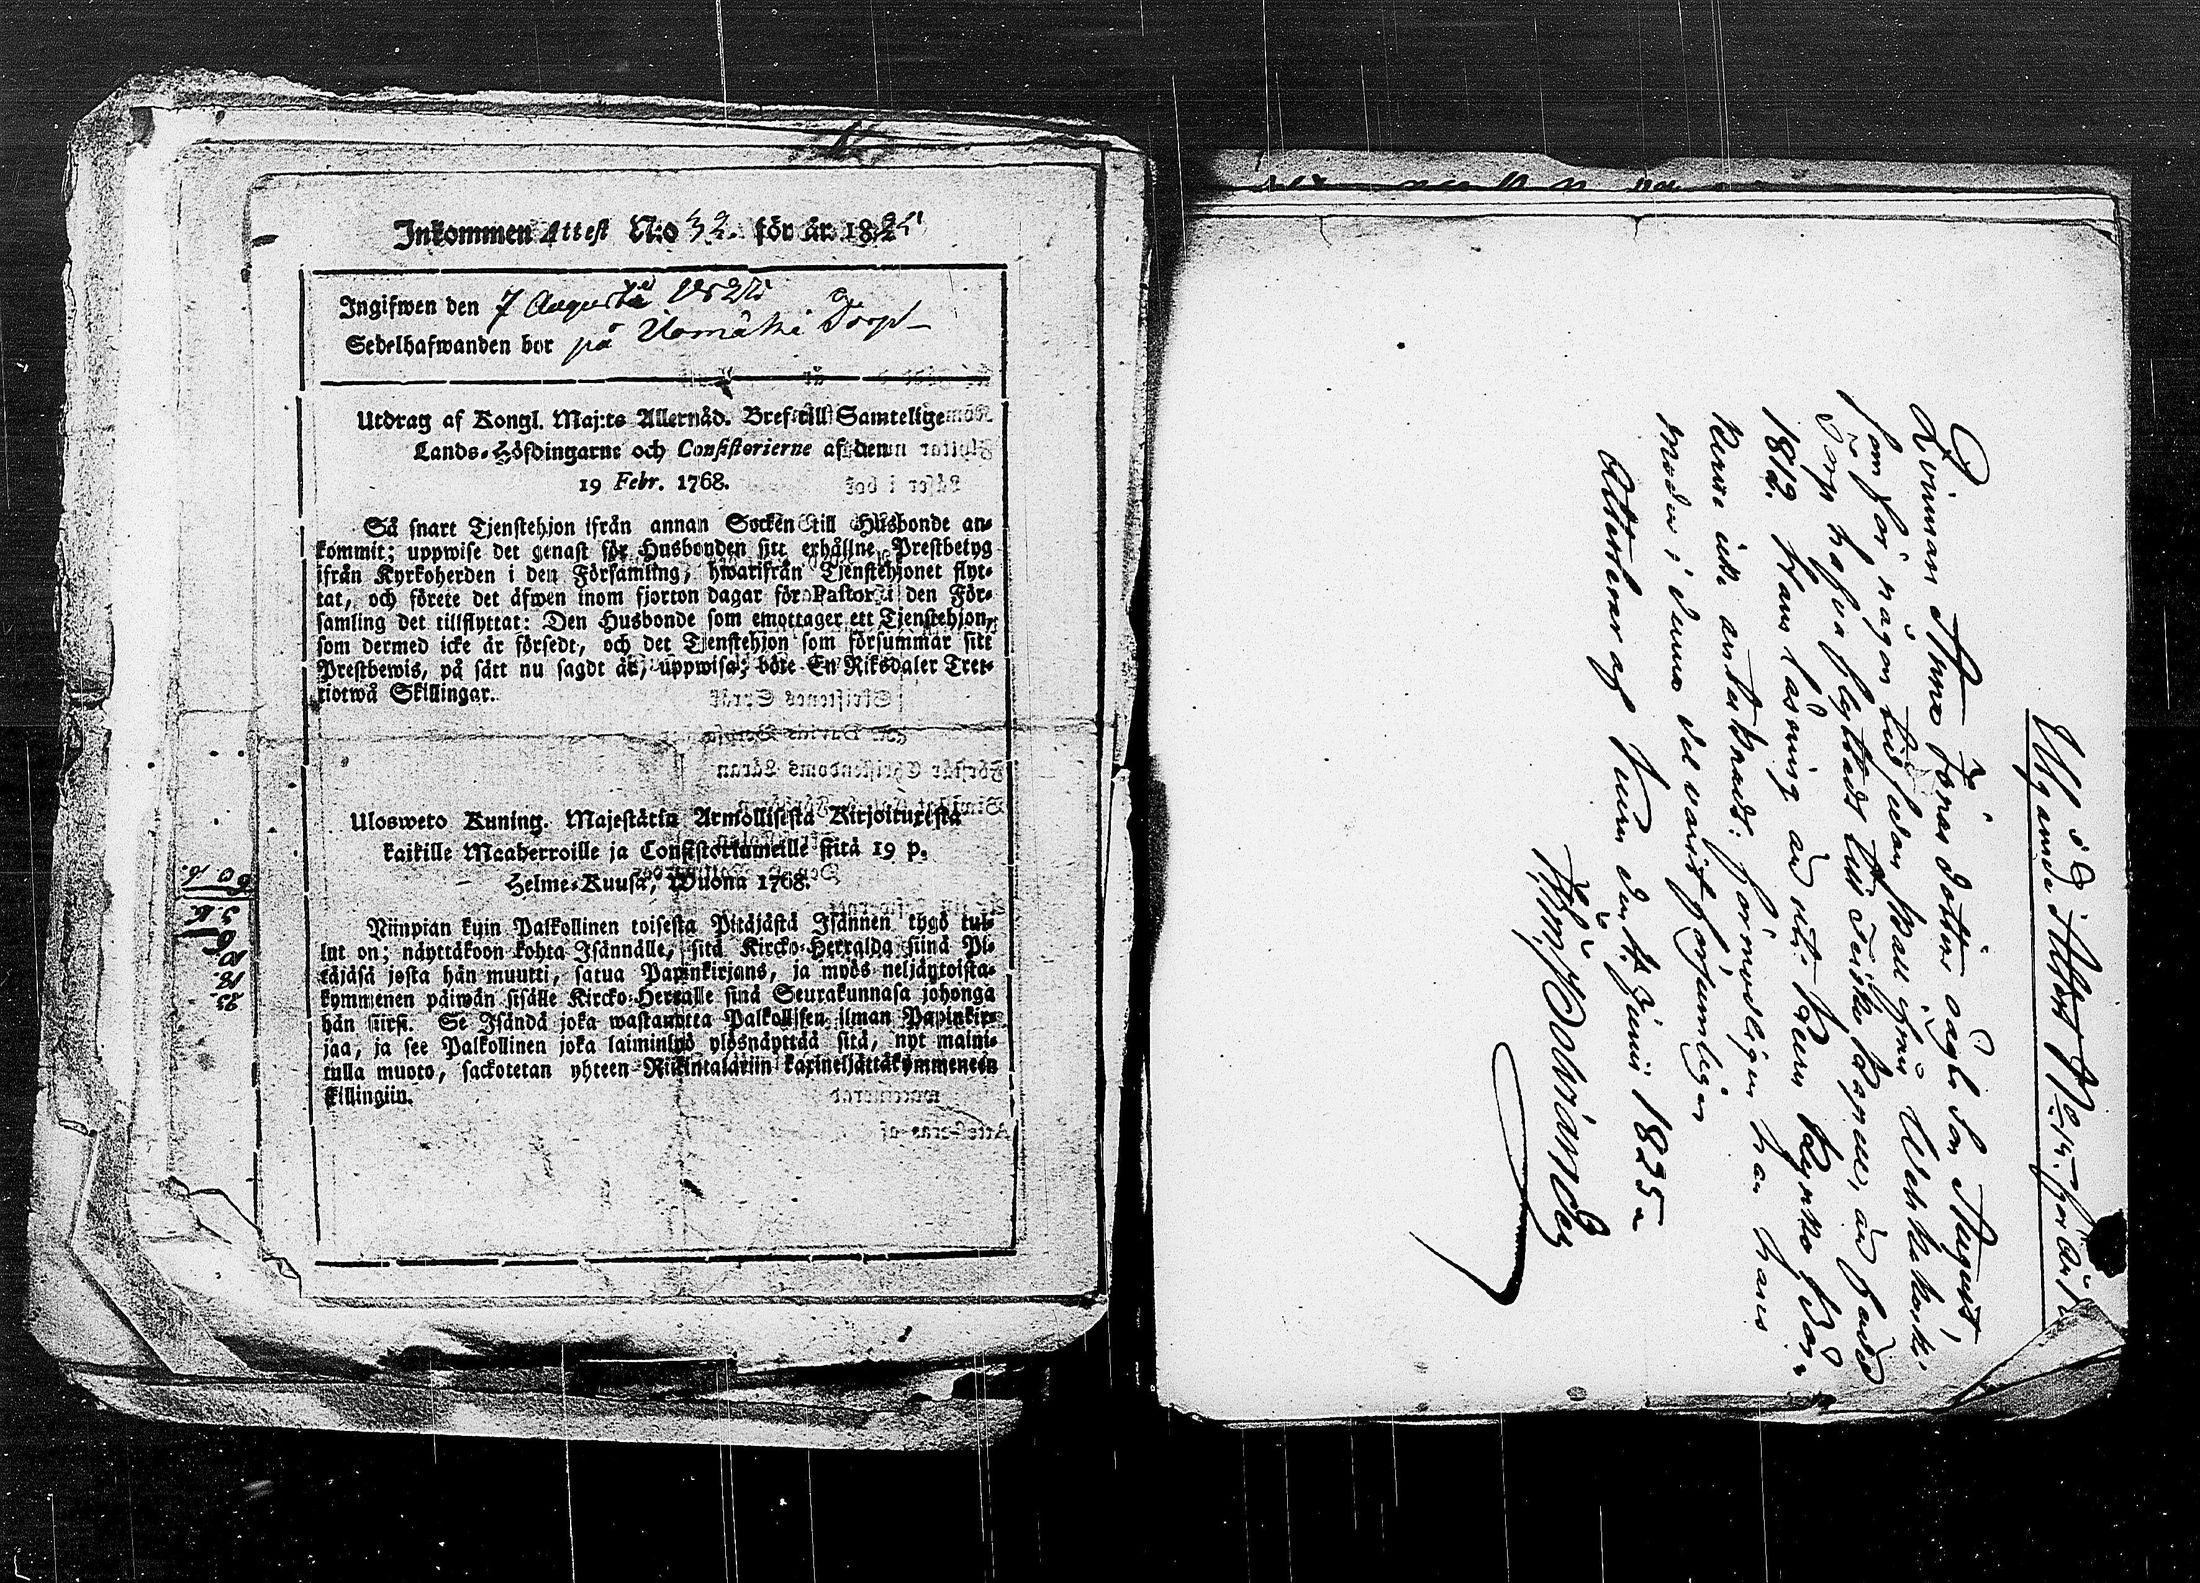 Inkommen Attest N:o 32. för år 1825
Ingifwen den 7 Augusti 1825
Sedelhafwanden bor på Uomäki Torp
Utdrag af Kongl. Maj:ts Allernåd. Bref till Samtelige
Lands-Höfdingarne och Consistorierne af den
19 Febr. 1768.
Så snart Tjenstehjon ifrån annan Socken till Husbonde an-
kommit; uppwise det genast för Husbonden sitt erhållne Prestbetyg
ifrån Kyrkoherden i den Församling, hwarifrån Tjenstehjonet flyt-
tat, och förete det äfwen inom fjorton dagar för Pastor i den För-
samling det tillflyttat: Den Husbonde som emottager ett Tjenstehjon,
som dermed icke är försedt, och det Tjenstehjon som försummar sitt
Prestbewis, på sätt nu sagdt är, uppwisa; böte En Riksdaler Tret-
tiotwå Skillingar.
Ulosweto Kuning. Majestätin Armollisesta Kirjoituxesta
kaikille Maaherroille ja Consistoriumeille siitä 19 p.
Helme-Kuusa, Wuona 1768.
Niinpian kuin Palkollinen toisesta Pitäjästä Isännen tygö tul-
lut on; näyttäkoon kohta Isännälle, sitä Kircko-Herralda siinä Pi-
täjäsä josta hän muutti, saatua Papinkirjans, ja myös neljäntoista-
kymmenen päiwän sisälle Kircko-Herralle siinä Seurakunnasa johonga
hän siirsi. Se Isändä joka wastanotta Palkollisen ilman Papinkir-
jaa, ja see Palkollinen joka laiminlyö ylösnäyttää sitä, nyt maini-
tulla muoto, sackotetan yhteen Riikintalariin kaxineljättäkymmeneen
killingiin.
Utgående Attest No 15. för år
Qvinnan Anna Jonas dotters oägta Son August,
som för någon tid sedan skall från Wehkakoski
Torp hafva flyttadt till Teisko Capell, är född
1812. Hans läsning är vid Kuru Kyrka Bar-
ne icke antecknadt: förmodligen han hans
moder i denna del varit försumliga
Attesterar af Kuru den 4 Junii 1825